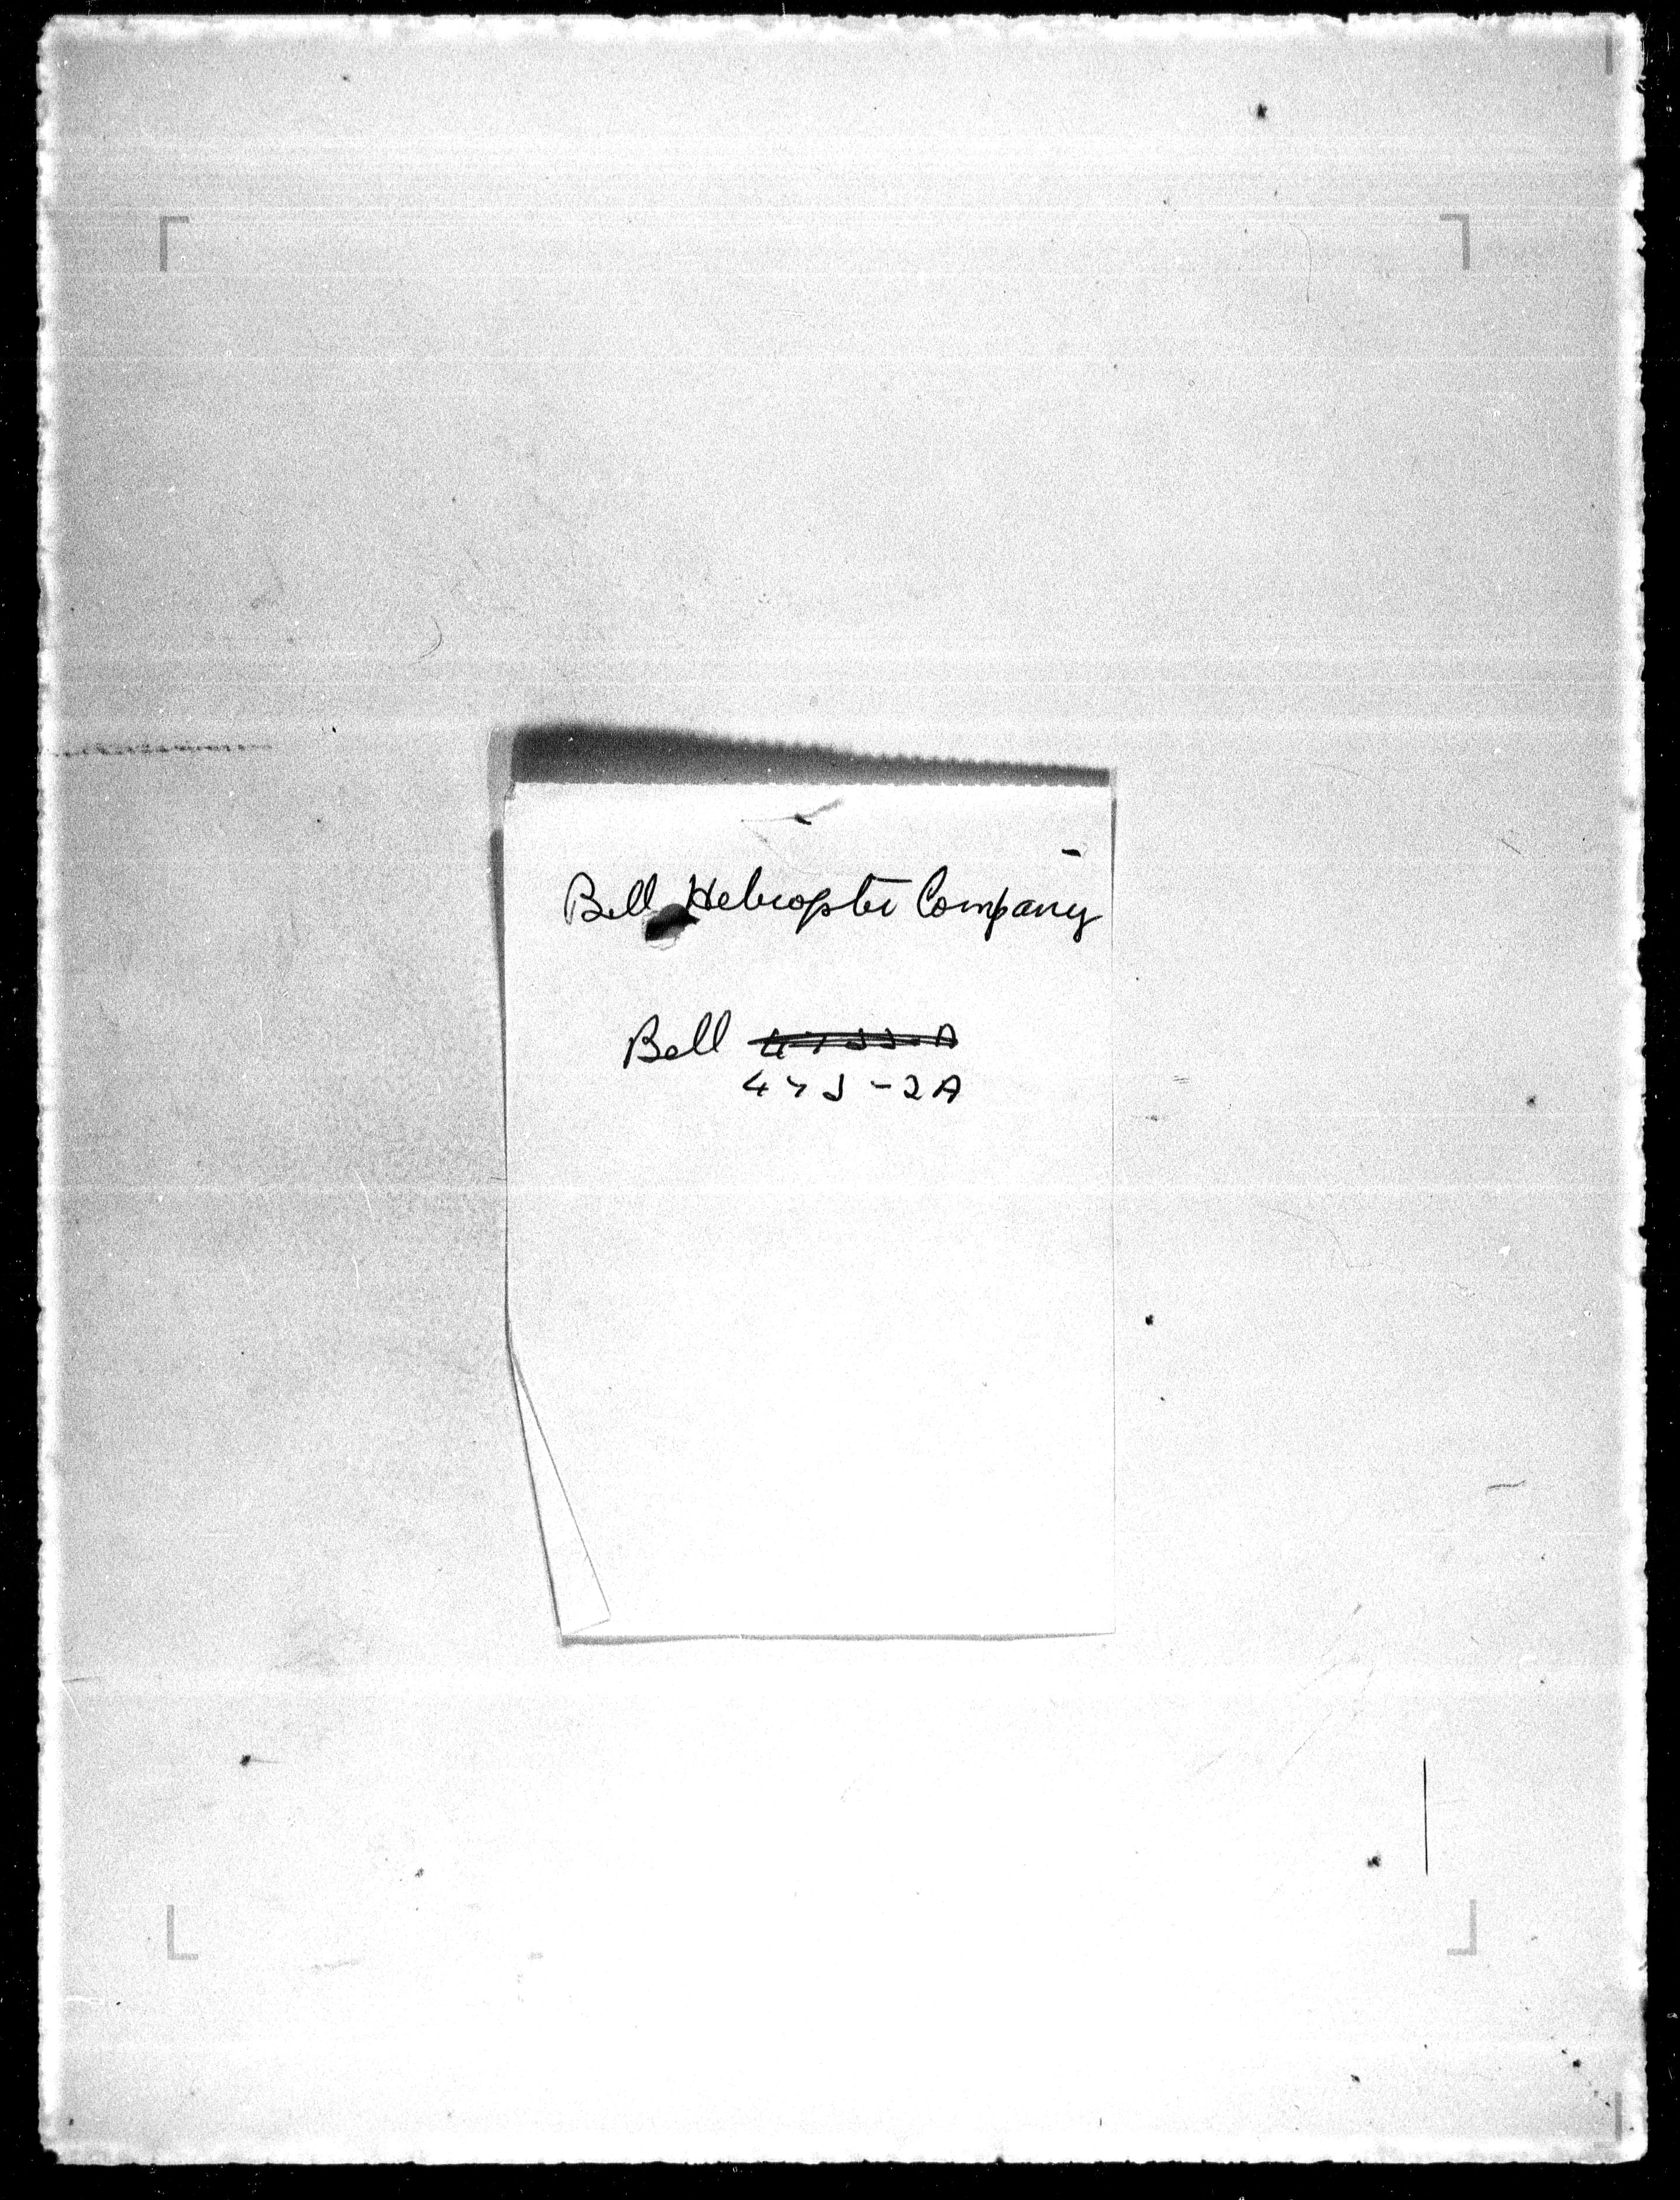 Bell Helicopter Company
Bell
47J-2A